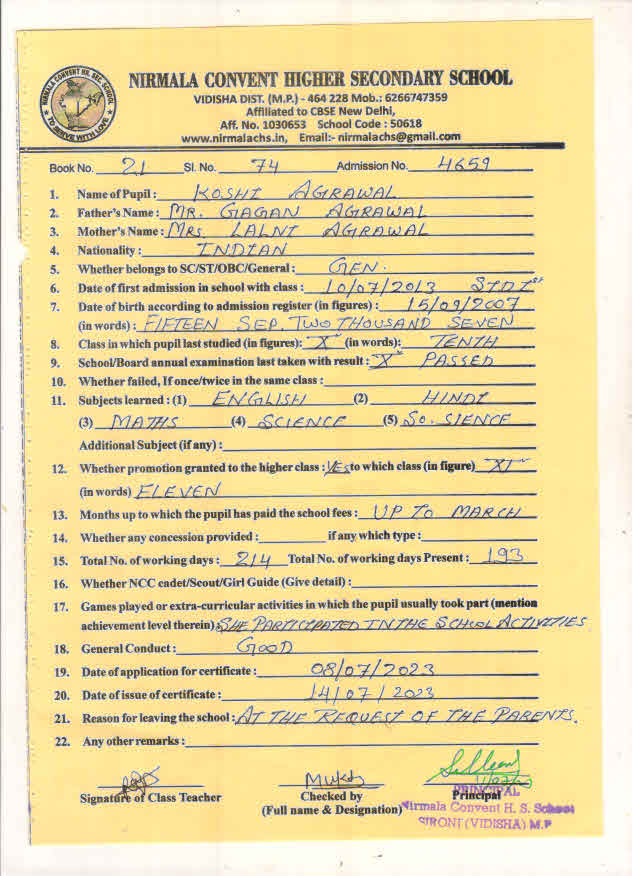 NIRMALA CONVENT HR. SEC. SCHOOL
TO SERVE WITH LOVE
NIRMALA CONVENT HIGHER SECONDARY SCHOOL
VIDISHA DIST. (M.P.) - 464 228 Mob.: 6266747359
Affiliated to CBSE New Delhi,
Aff. No. 1030653 School Code : 50618
www.nirmalachs.in, Email:- nirmalachs@gmail.com
Book No. 21 Sl. No. 74 Admission No. 4659
1. Name of Pupil : KOSHI AGRAWAL
2. Father's Name : MR. GAGAN AGRAWAL
3. Mother's Name : MRS. LALNI AGRAWAL
4. Nationality : INDIAN
5. Whether belongs to SC/ST/OBC/General : GEN.
6. Date of first admission in school with class : 10/07/2013 STD Ist
7. Date of birth according to admission register (in figures) : 15/09/2007
(in words) : FIFTEEN SEP. TWO THOUSAND SEVEN
8. Class in which pupil last studied (in figures): X (in words): TENTH
9. School/Board annual examination last taken with result : X PASSED
10. Whether failed, If once/twice in the same class :
11. Subjects learned : (1) ENGLISH (2) HINDI
(3) MATHS (4) SCIENCE (5) SO. SIENCE
Additional Subject (if any) :
12. Whether promotion granted to the higher class : YES to which class (in figure) XI
(in words) ELEVEN
13. Months up to which the pupil has paid the school fees : UP TO MARCH
14. Whether any concession provided : if any which type :
15. Total No. of working days : 214 Total No. of working days Present : 193
16. Whether NCC cadet/Scout/Girl Guide (Give detail) :
17. Games played or extra-curricular activities in which the pupil usually took part (mention
achievement level therein) : SHE PARTICIPATED IN THE SCHOOL ACTIVITIES
18. General Conduct : GOOD
19. Date of application for certificate : 08/07/2023
20. Date of issue of certificate : 14/07/2023
21. Reason for leaving the school : AT THE REQUEST OF THE PARENTS.
22. Any other remarks :
Signature of Class Teacher Checked by Principal
(Full name & Designation)
PRINCIPAL
Nirmala Convent H. S. School
SIRONJ (VIDISHA) M.P